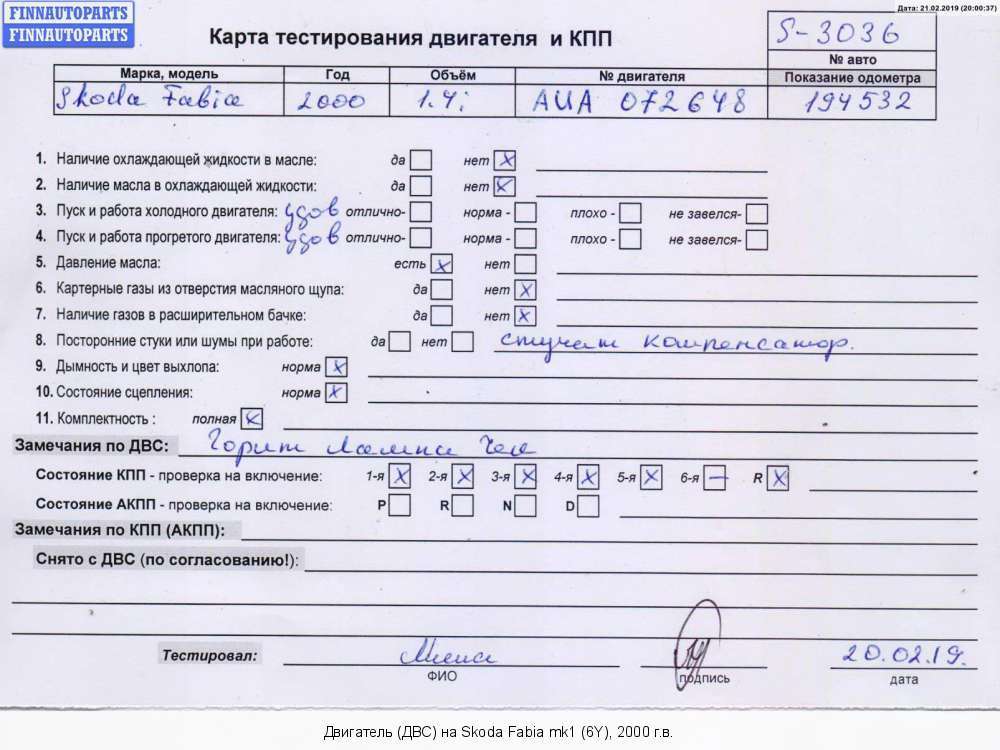 FINNAUTOPARTS
FINNAUTOPARTS
Дата: 21.02.2019 (20:00:37)
Карта тестирования двигателя и КПП
S-3036
№ авто
Марка, модель Год Объём № двигателя Показание одометра
Skoda Fabia 2000 1.4i AUA 072648 194532
1. Наличие охлаждающей жидкости в масле: да нет x
2. Наличие масла в охлаждающей жидкости: да нет x
3. Пуск и работа холодного двигателя: удов отлично- норма - плохо - не завелся-
4. Пуск и работа прогретого двигателя: удов отлично- норма - плохо - не завелся-
5. Давление масла: есть x нет
6. Картерные газы из отверстия масляного щупа: да нет x
7. Наличие газов в расширительном бачке: да нет x
8. Посторонние стуки или шумы при работе: да нет стучат компенсатор.
9. Дымность и цвет выхлопа: норма x
10. Состояние сцепления: норма x
11. Комплектность : полная x
Замечания по ДВС: Горит Лампа Чек
Состояние КПП - проверка на включение: 1-я x 2-я x 3-я x 4-я x 5-я x 6-я – R x
Состояние АКПП - проверка на включение: P R N D
Замечания по КПП (АКПП):
Снято с ДВС (по согласованию!):
Тестировал: 20.02.19.
ФИО подпись дата
Двигатель (ДВС) на Skoda Fabia mk1 (6Y), 2000 г.в.